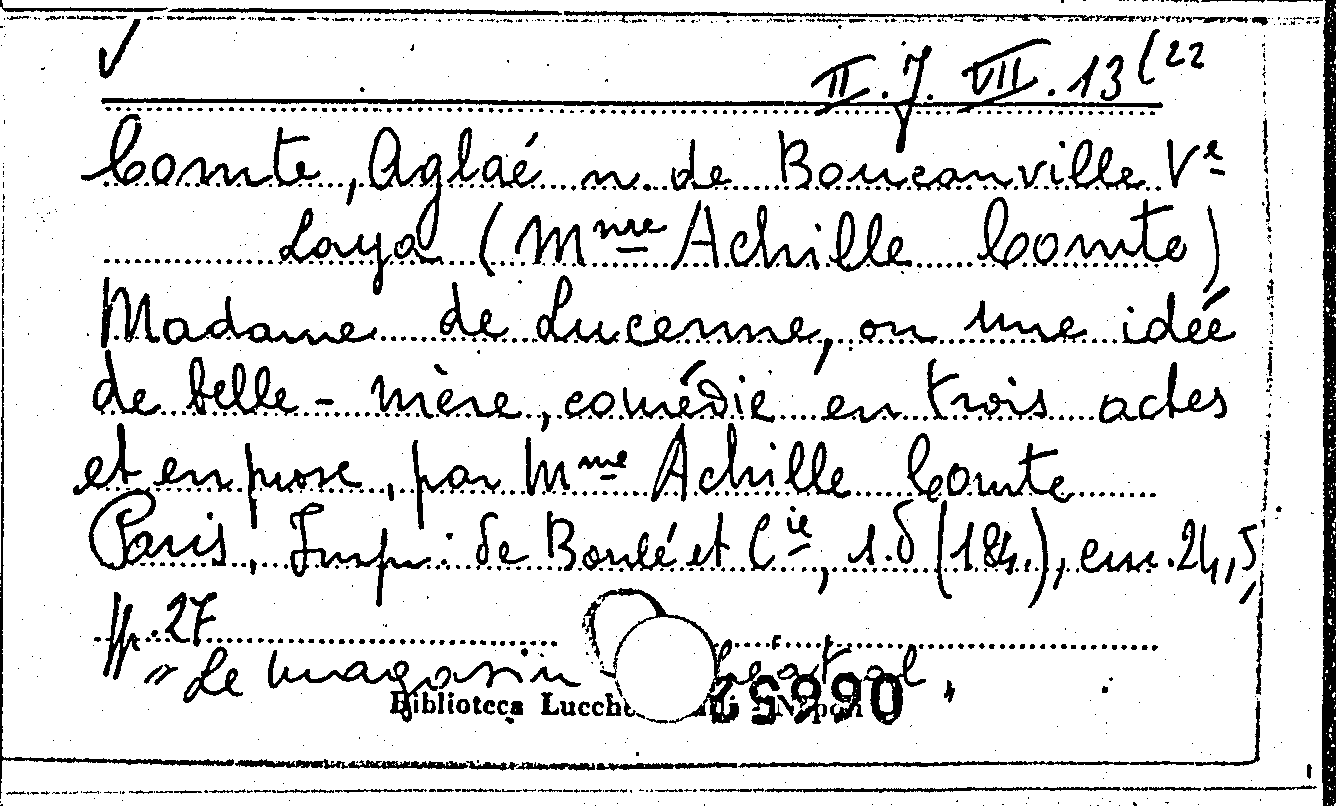 II. J. VII. 13 (22
Comte, Aglaé n. de Bouconville Vᵉ
Laya (Mᵐᵐᵉ Achille Comte)
Madame de Lucenne, ou une idée
de belle-mère, comédie en trois actes
et en prose, par Mᵐᵐᵉ Achille Comte
Paris, Impr. de Boulé et Cⁱᵉ, s.d (184.), cm. 24,5,
pp. 27
"Le magasin
Biblioteca